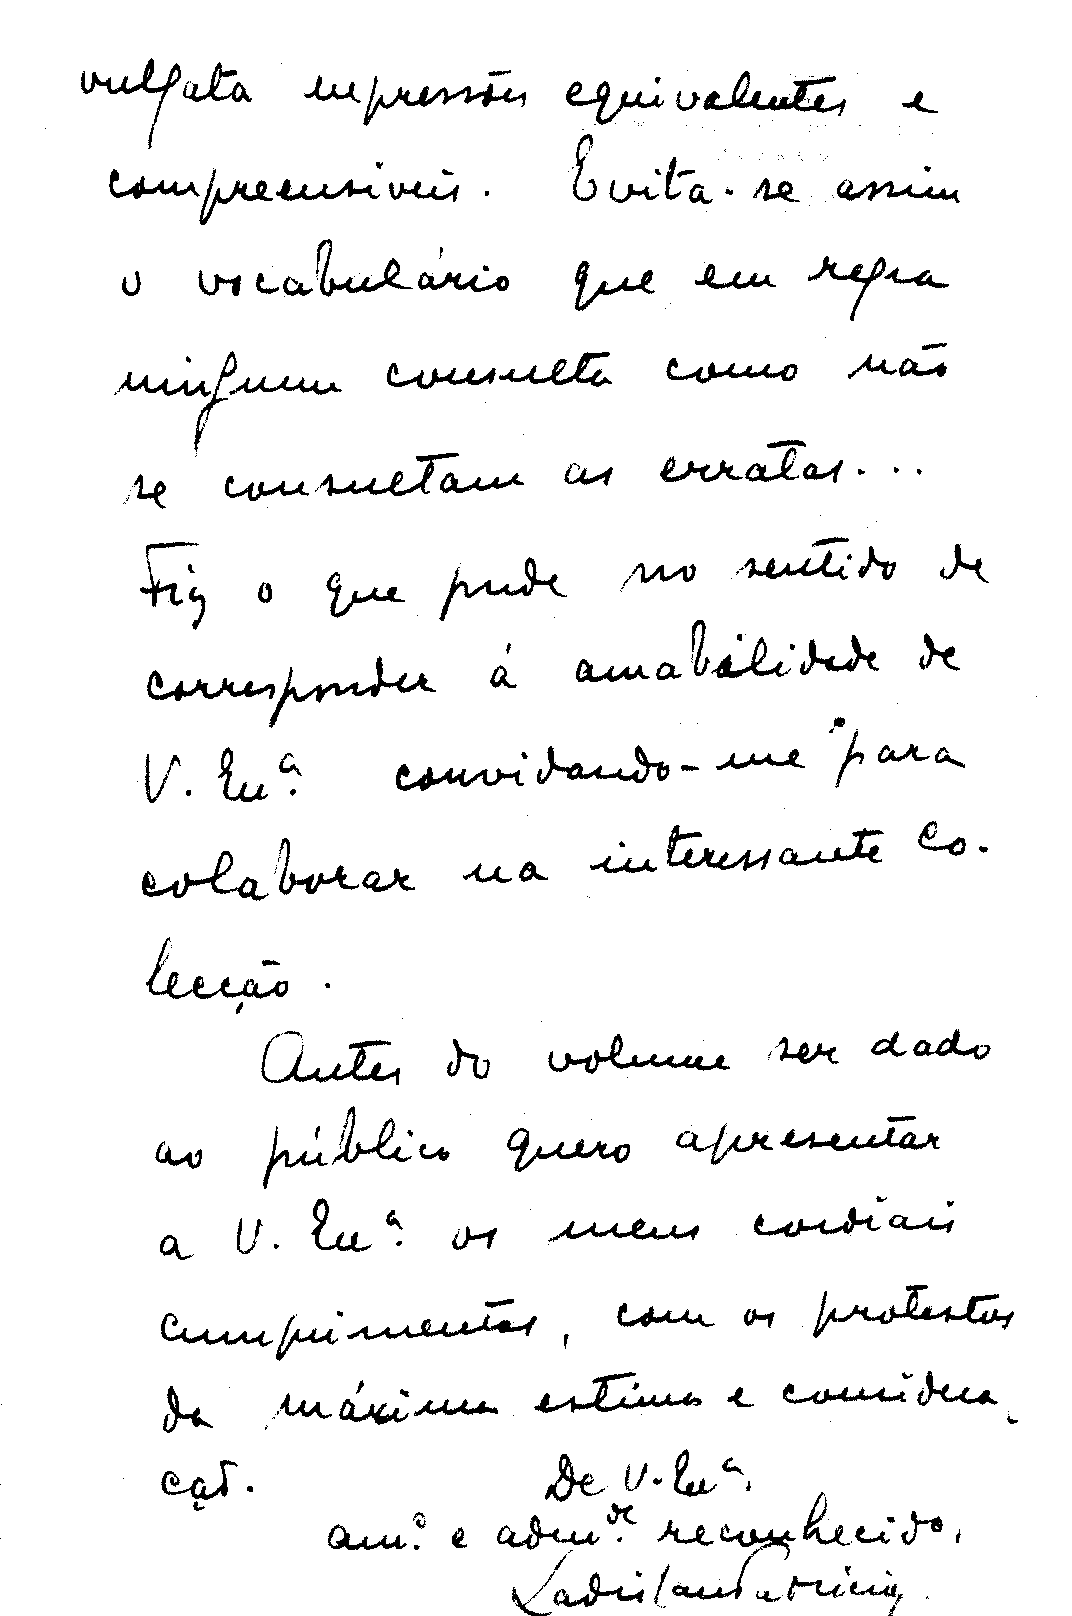 vulgata expressões equivalentes e
compreensiveis. Evita-se assim
o vocabulário que em regra
ninguem consulta como não
se consultam as erratas...
Fiz o que pude no sentido de
corresponder á amabilidade de
V. Exª. convidando-me para
colaborar na interessante Co-
lecção.
Antes do volume ser dado
ao público quero apresentar
a V. Exª. os meus cordiais
cumprimentos, com os protestos
da máxima estima e considera-
ção. De V. Exª.
amº. e admdºr. reconhecido,
Ladislau Patricio